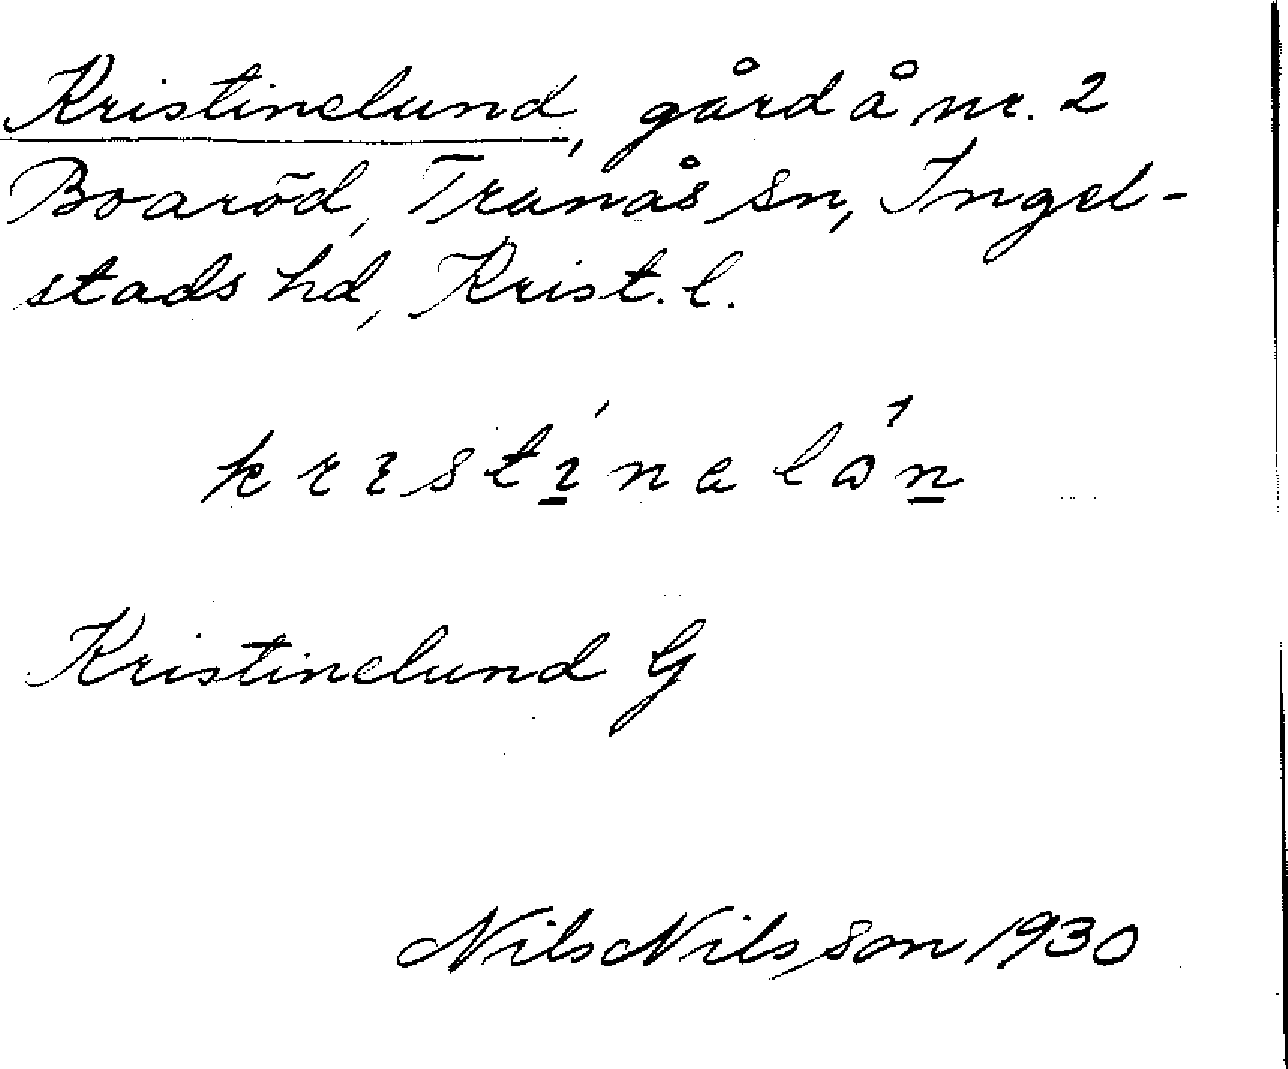 Kristinelund, gård å nr. 2
Boaröd, Tranås sn, Ingel-
stads hd, Krist. l.
Kristinelund G
Nils Nilsson 1930